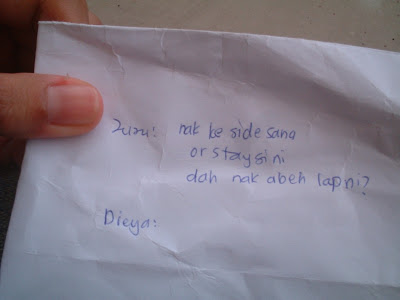 Zuzu: nak ke side sana
or stay sini
dah nak abeh lap ni?
Dieya: